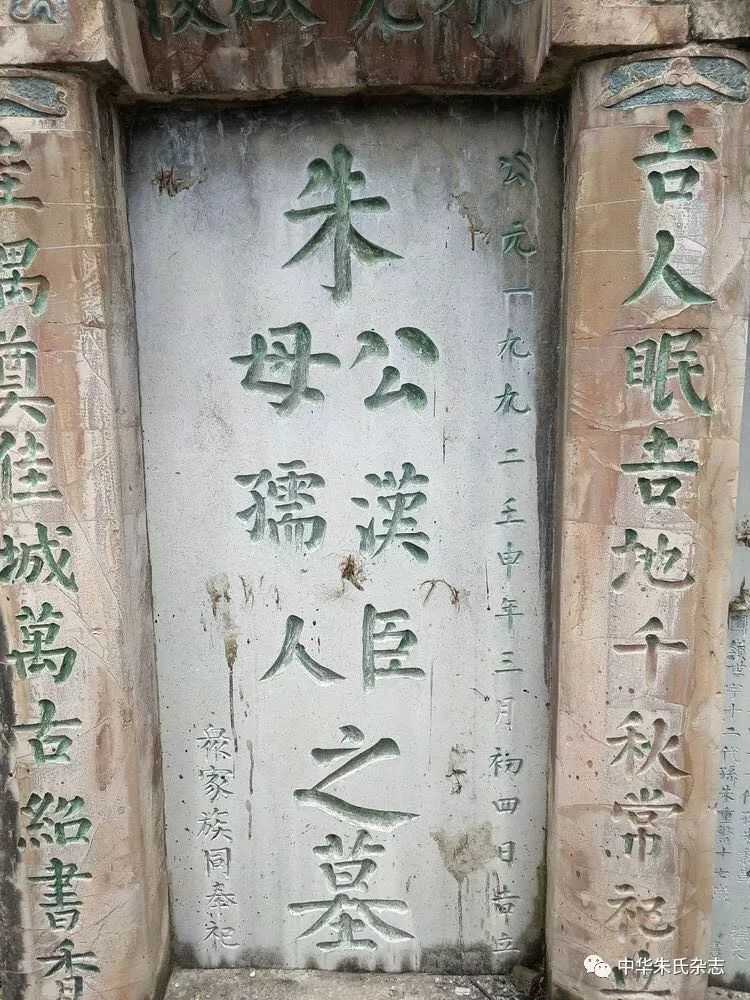 吉人眠吉地千秋常祀
公元一九九二壬申年三月初四日吉立
朱
公漢臣
母孺人
之墓
衆家族同奉祀
佳偶奠佳城萬古紹書香
十二代孫朱重
中华朱氏杂志